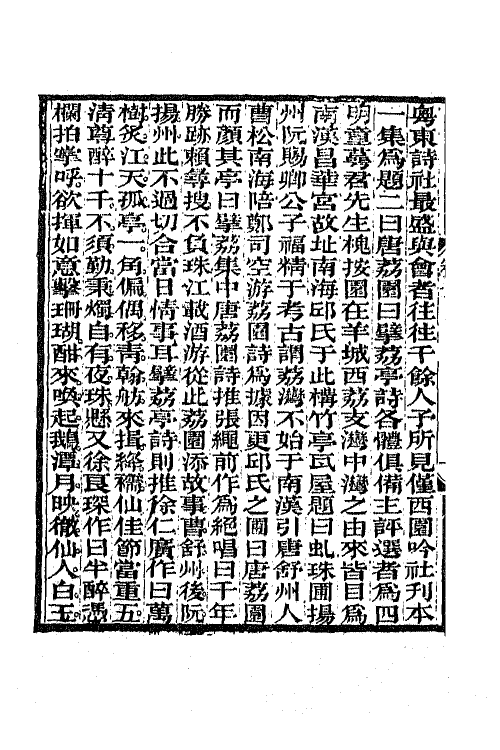 粵東詩社最盛與會者往往千餘人予所見僅西園吟社刊本
一集爲題二曰唐荔園曰擘荔亭詩各體俱備主評選者爲四
明童萼君先生槐按園在羊城西荔支灣中灣之由來皆目爲
南漢昌華宮故址南海邱氏于此構竹亭瓦屋題曰虬珠圃揚
州阮賜卿公子福精于考古謂荔灣不始于南漢引唐舒州人
曹松南海陪鄭司空游荔園詩爲據因更邱氏之圃曰唐荔園
而顏其亭曰擘荔集中唐荔園詩推張繩前作爲絕唱曰千年
勝跡賴尋搜不負珠江載酒游從此荔園添故事曹舒州後阮
揚州此不過切合當日情事耳擘荔亭詩則推徐仁廣作曰萬
樹炙江天孤亭一角偏偶移青翰舫來揖絳襦仙佳節當重五
清尊醉十千不須勤秉燭自有夜珠懸又徐良琛作曰半醉憑
欄拍掌呼欲揮如意擊珊瑚酣來喚起鵝潭月映徹仙人白玉